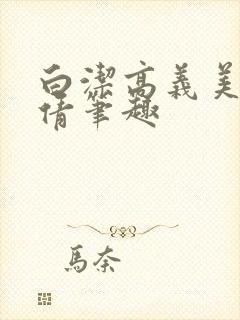 白潔高義美
倩筆趣
馬奈